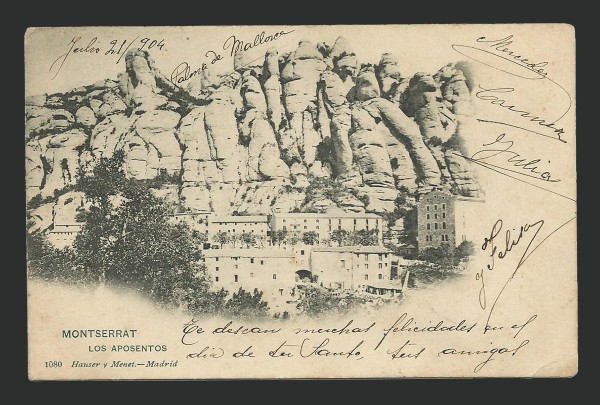 Julio 21/904.
Palma de Mallorca
Mercedes
Carmen
Julia
y Felisa
MONTSERRAT
LOS APOSENTOS
1080 Hauser y Menet.—Madrid
Te desean muchas felicidades en el
dia de tu Santo, tus amigas